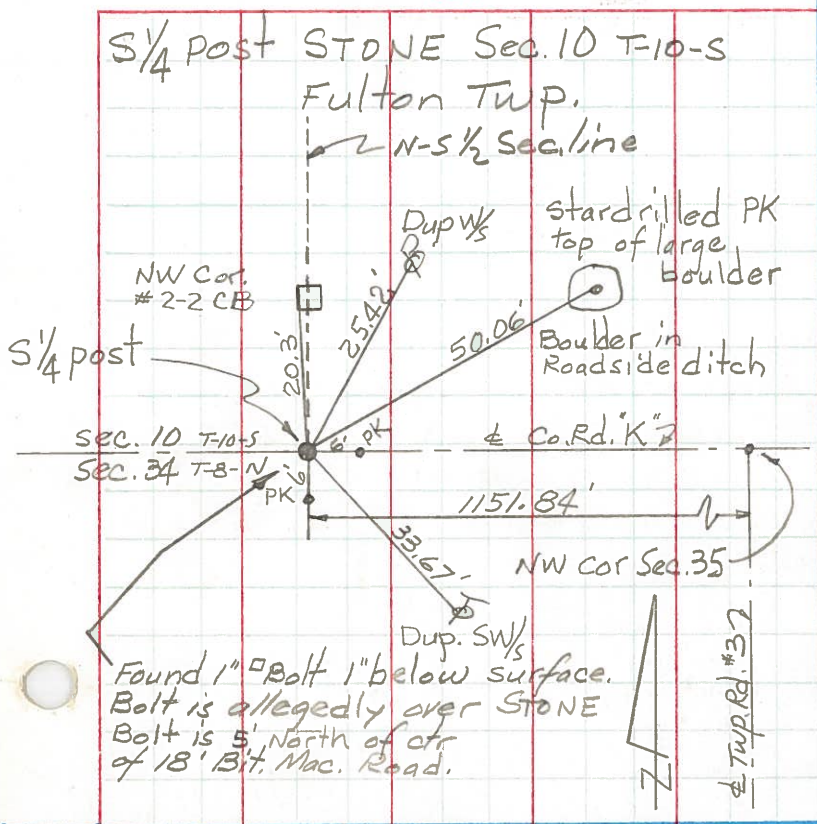 S 1/4 post STONE Sec. 10 T-10-S
Fulton Twp.
N-S 1/2 Sec. line
Dup W/s
Stardrilled PK
top of large
boulder
NW Cor.
# 2-2 CB
25.42'
50.06'
Boulder in
Roadside ditch
S 1/4 post
20.3'
Sec. 10 T-10-S
6'
PK
℄ Co. Rd. "K"
Sec. 34 T-8-N
6'
PK
1151.84'
33.67'
NW Cor Sec. 35
Dup. SW/s
Found 1" □ Bolt 1" below surface.
Bolt is allegedly over STONE
Bolt is 5' North of ctr
of 18' Bit. Mac. Road.
N
℄ Twp. Rd. #37